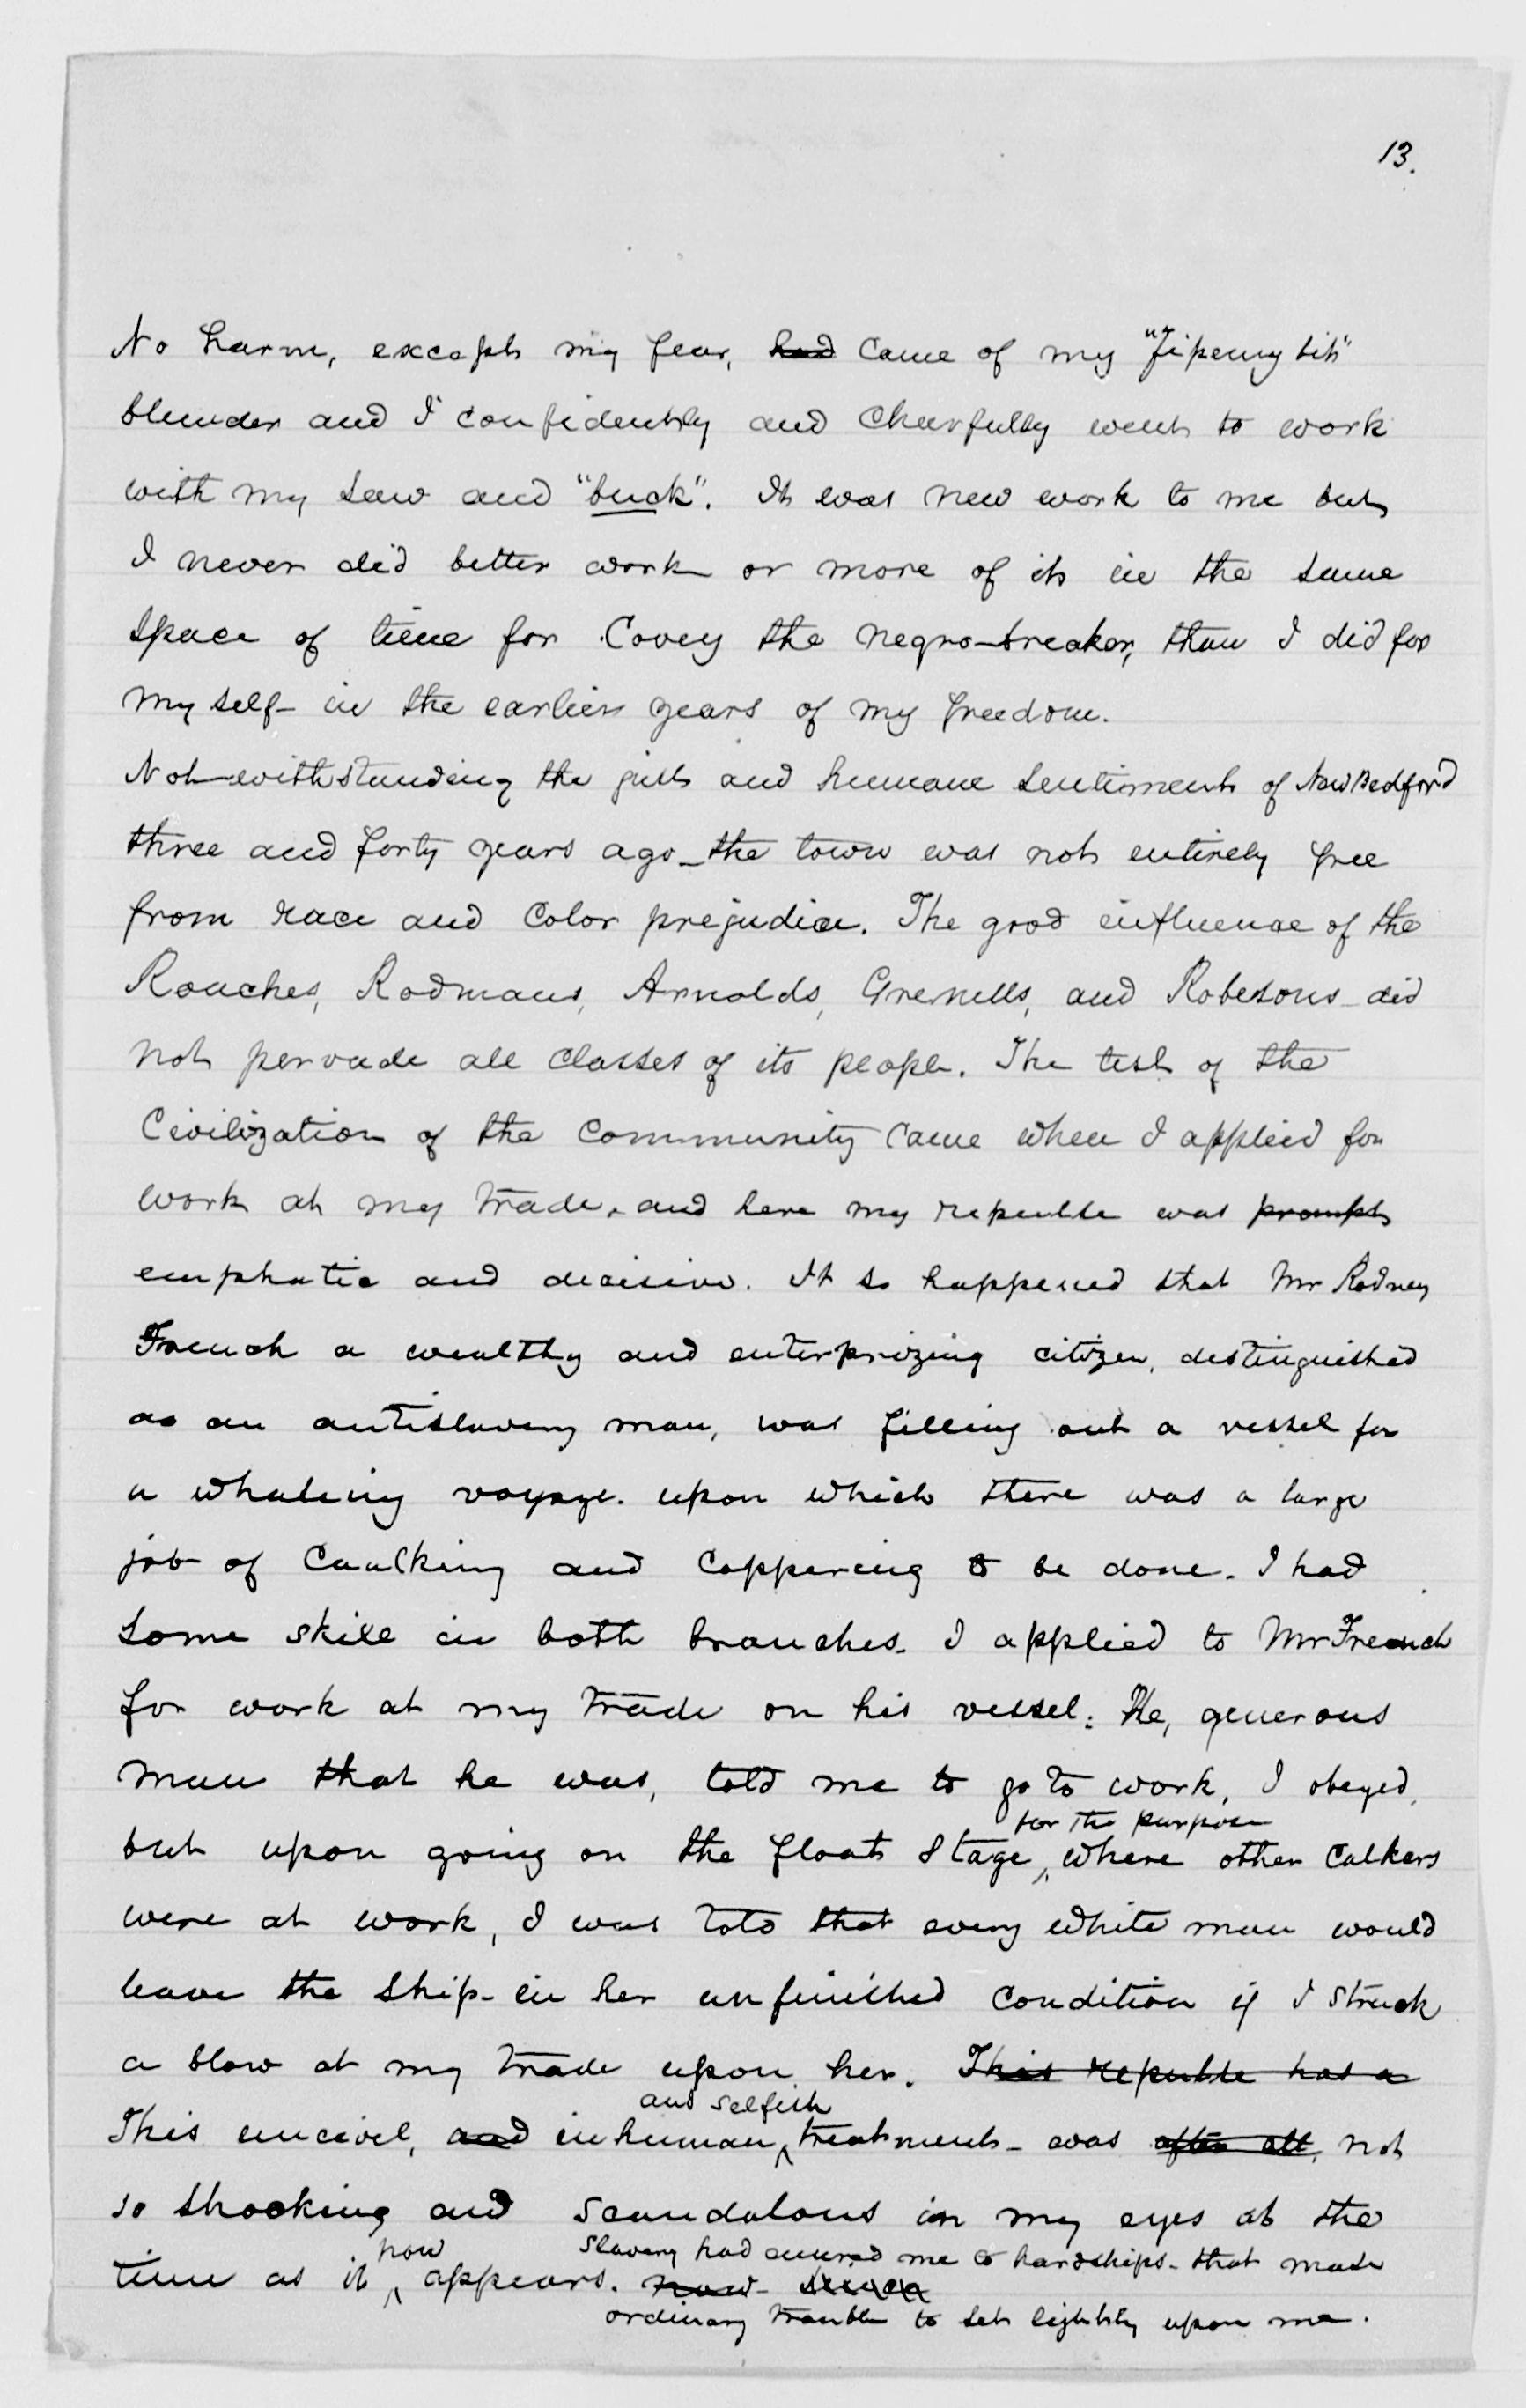 13.
No harm, except my fear, had came of my "fipenny bit"
blunder and I confidently and cheerfully went to work
with my saw and "buck". It was new work to me but
I never did better work or more of it in the same
space of time for Covey the negro-breaker, than I did for
my self - in the earlier years of my freedom.
Notwithstanding the just and humane sentiment of New Bedford
three and forty years ago - the town was not entirely free
from race and color prejudice. The good influence of the
Rouches, Rodmans, Arnolds, Grenells, and Robesons did
not pervade all classes of its people. The test of the
Civilization of the community came when I applied for
work at my trade, and here my repulse was prompt
emphatic and decisive. It so happened that Mr Rodney
French a wealthy and enterprizing citizen, distinguished
as an antislavery man, was fitting out a vessel for
a whaling voyage. upon which there was a large
job of caulking and coppering to be done. I had
some skill in both branches. I applied to Mr French
for work at my trade on his vessel. He, generous
man that he was, told me to go to work, I obeyed,
for the purpose
but upon going on the float stage, where other calkers
were at work, I was told that every white man would
leave the ship - in her unfinished condition if I struck
a blow at my trade upon her. This repulse has a
and selfish
This uncivil, and inhuman, treatment - was after all, not
so shocking and scandalous in my eyes at the
now Slavery had enured me to hardships - that made
time as it appears. now
ordinary trouble to set lightly upon me.